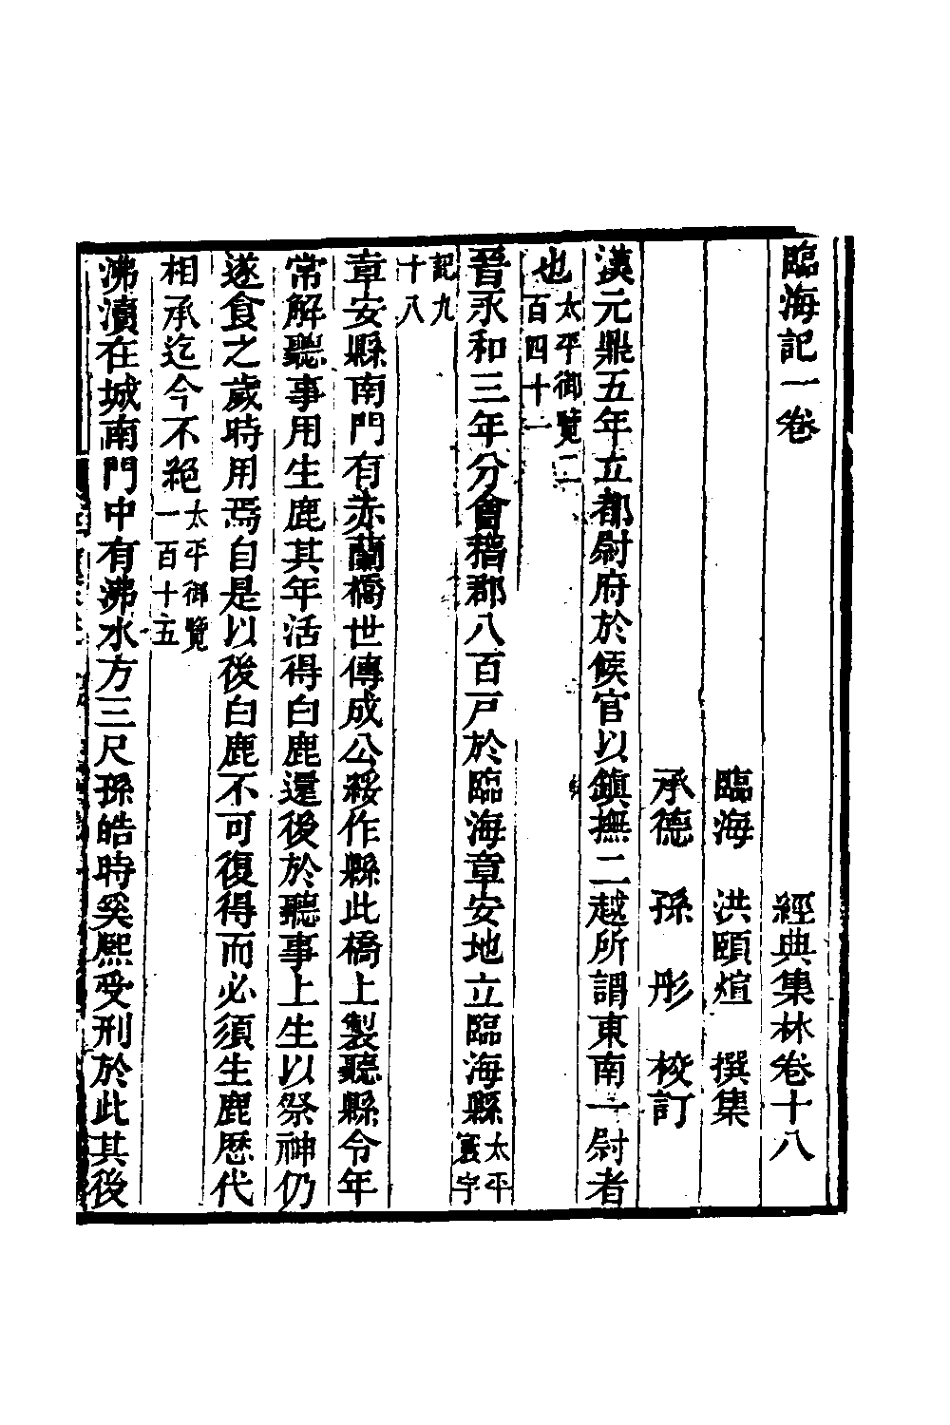 臨海記一卷　經典集林卷十八
臨海　洪頤煊　撰集
承德　孫　彤　校訂
漢元鼎五年立都尉府於候官以鎮撫二越所謂東南一尉者
也太平御覽二百四十一
晉永和三年分會稽郡八百戸於臨海章安地立臨海縣太平寰宇
記九十八
章安縣南門有赤蘭橋世傳成公綏作縣此橋上製聽縣令年
常解聽事用生鹿其年活得白鹿還後於聽事上生以祭神仍
遂食之歲時用焉自是以後白鹿不可復得而必須生鹿歷代
相承迄今不絕太平御覽一百十五
沸瀆在城南門中有沸水方三尺孫皓時奚熙受刑於此其後